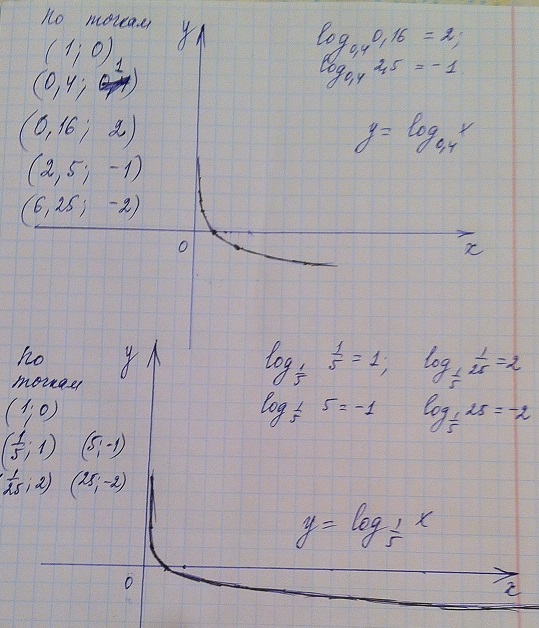 По точкам
(1; 0)
(0,4; 1)
(0,16; 2)
(2,5; -1)
(6,25; -2)
y
log₀,₄ 0,16 = 2;
log₀,₄ 2,5 = -1
y = log₀,₄ x
0
x
По
точкам
(1; 0)
(1/5; 1) (5; -1)
(1/25; 2) (25; -2)
y
log_{1/5} 1/5 = 1; log_{1/5} 1/25 = 2
log_{1/5} 5 = -1 log_{1/5} 25 = -2
y = log_{1/5} x
0
x